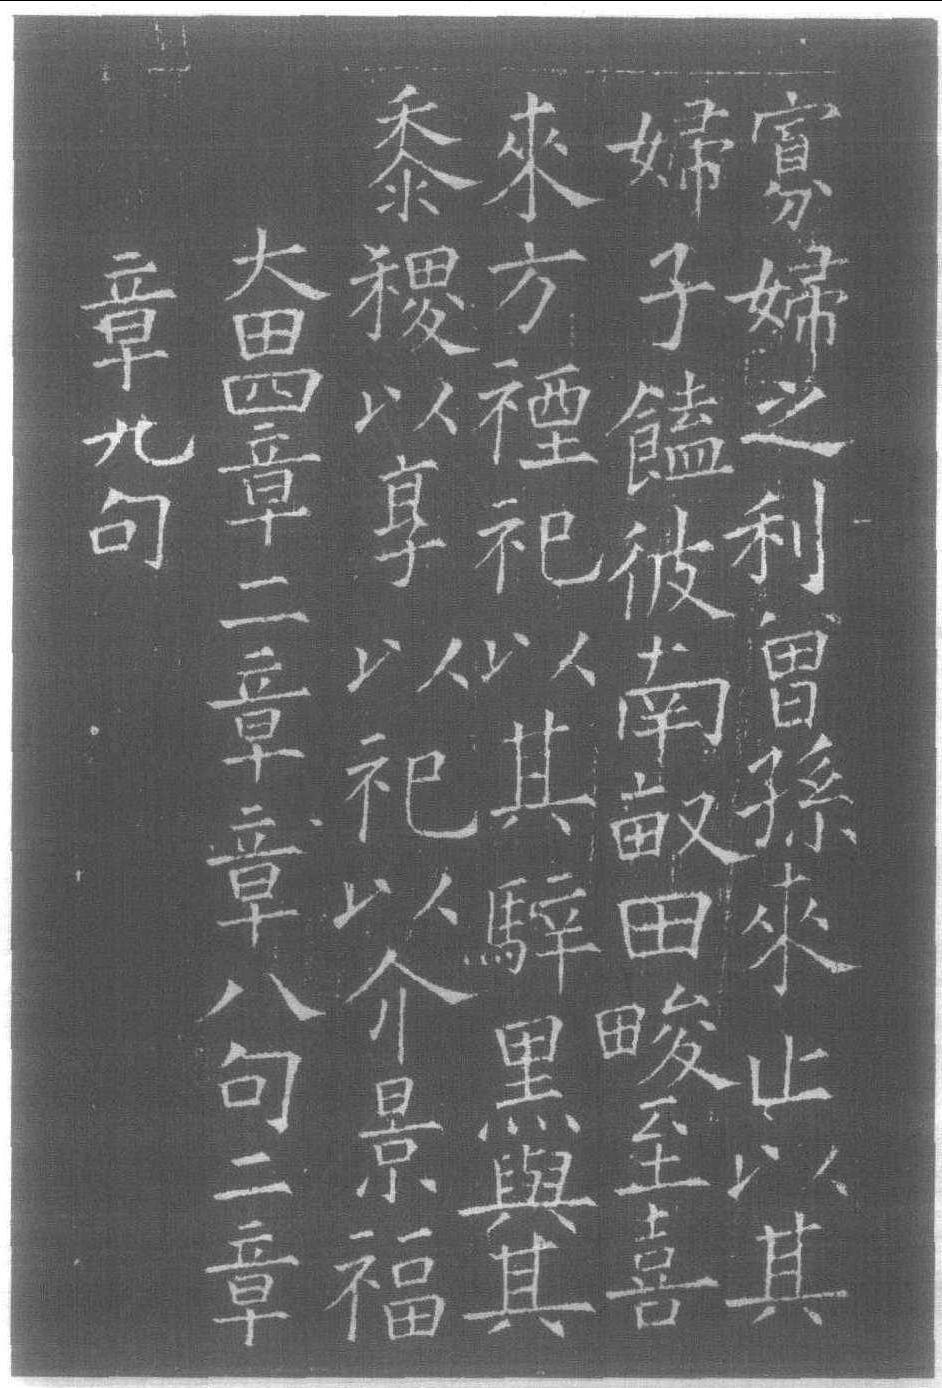 寡婦之利曾孫來止以其
婦子饁彼南畝田畯至喜
來方禋祀以其騂黑與其
黍稷以享以祀以介景福
大田四章二章章八句二章
章九句